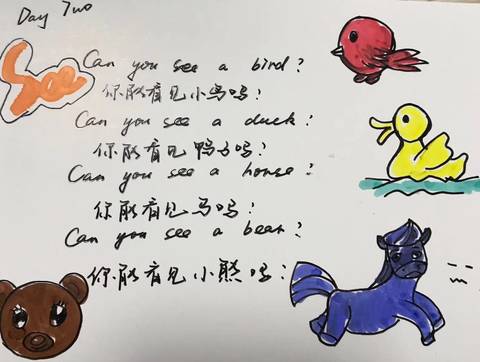 Day Two
See
Can you see a bird?
你能看见小鸟吗?
Can you see a duck?
你能看见鸭子吗?
Can you see a horse?
你能看见马吗?
Can you see a bear?
你能看见小熊吗?